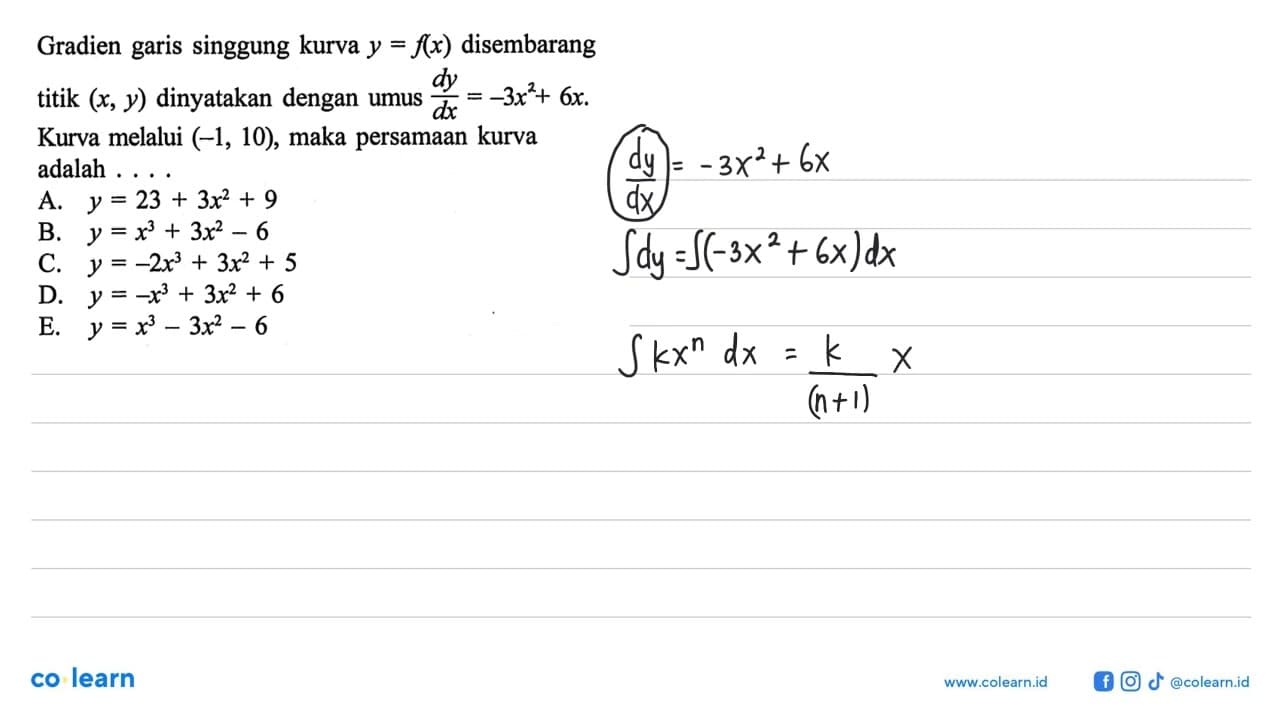 Gradien garis singgung kurva y = f(x) disembarang
titik (x, y) dinyatakan dengan umus dy/dx = –3x²+ 6x.
Kurva melalui (–1, 10), maka persamaan kurva
adalah . . . .
A. y = 23 + 3x² + 9
B. y = x³ + 3x² – 6
C. y = –2x³ + 3x² + 5
D. y = –x³ + 3x² + 6
E. y = x³ – 3x² – 6
dy/dx = -3x² + 6x
∫dy = ∫(-3x² + 6x)dx
∫kxⁿ dx = k/(n+1) x
co learn
www.colearn.id
@colearn.id